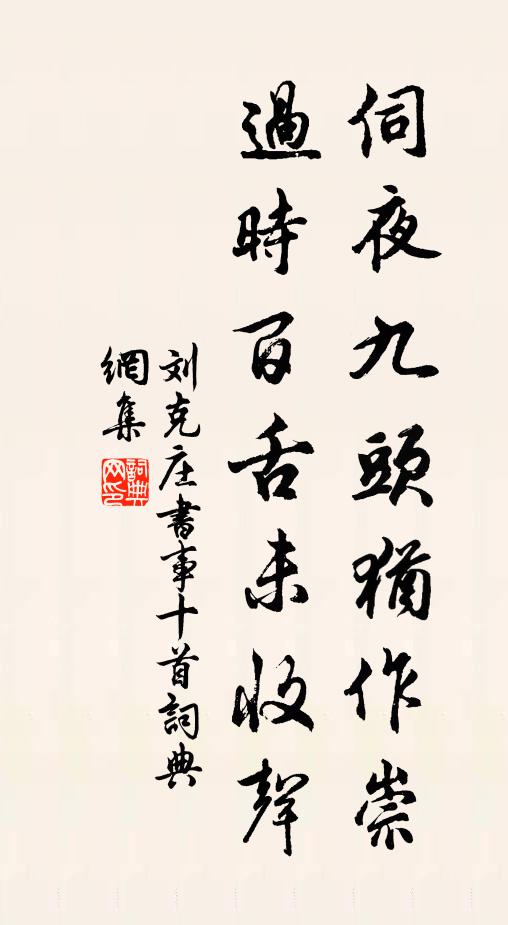 伺夜九頭猶作祟
過時百舌未收聲
刘克庄書事十首詞典
網集
詞典網印